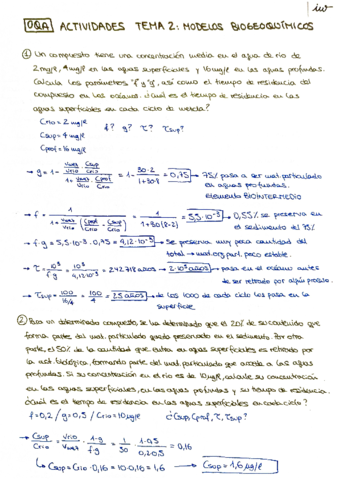 OQA ACTIVIDADES TEMA 2: MODELOS BIOGEOQUÍMICOS
① Un compuesto tiene una concentración media en el agua de río de
2 mg/l, 4 mg/l en las aguas superficiales y 16 mg/l en las aguas profundas.
Calcula los parámetros "f" y "g", así como el tiempo de residencia del
compuesto en los océanos. ¿Cuál es el tiempo de residencia en las
aguas superficiales en cada ciclo de mezcla?
Crío = 2 mg/l
Csup = 4 mg/l
Cprof = 16 mg/l
f? g? τ? τsup?
→ g = 1 - = 1 - 30·2 / 1+30·8 = 0,75 → 75% pasa a ser mat. particulado
en aguas profundas.
Elemento BIOINTERMEDIO
→ f = 1 / = 1 / 1+30(8-2) = 5,5·10⁻³ → 0,55% se preserva en
el sedimento del 75%
→ f·g = 5,5·10⁻³·0,75 = 4,12·10⁻³ → Se preserva muy poca cantidad del
total → mat. org. part. poco estable.
→ τ = 10³ / f·g = 10³ / 4,12·10⁻³ = 242718 años → 2·10⁵ años → pasa en el océano antes
de ser retirado por algún proceso.
→ τsup = 100 / = 100 / 4 = 25 años → de los 1000 de cada ciclo los pasa en la
superficie
② Para un determinado compuesto se ha determinado que el 20% de su contenido que
forma parte del mat. particulado queda preservado en el sedimento. Por otra
parte, el 50% de la cantidad que entra en aguas superficiales es retirado por
la act. biológica, formando parte del mat. particulado que accede a las aguas
profundas. Si su concentración en el río es de 10 µg/l, calcule su concentración
en las aguas superficiales, en las aguas profundas y su tiempo de residencia.
¿Cuál es el tiempo de residencia en las aguas superficiales en cada ciclo?
f = 0,2 / g = 0,5 / Crío = 10 µg/l ¿Csup, Cprof, τ, τsup?
→ Csup / Crío = Vrío / · 1-g / f·g = 1 / 30 · 1-0,5 / 0,2·0,5 = 0,16
↳ Csup = Crío·0,16 = 10·0,16 = 1,6 → Csup = 1,6 µg/l